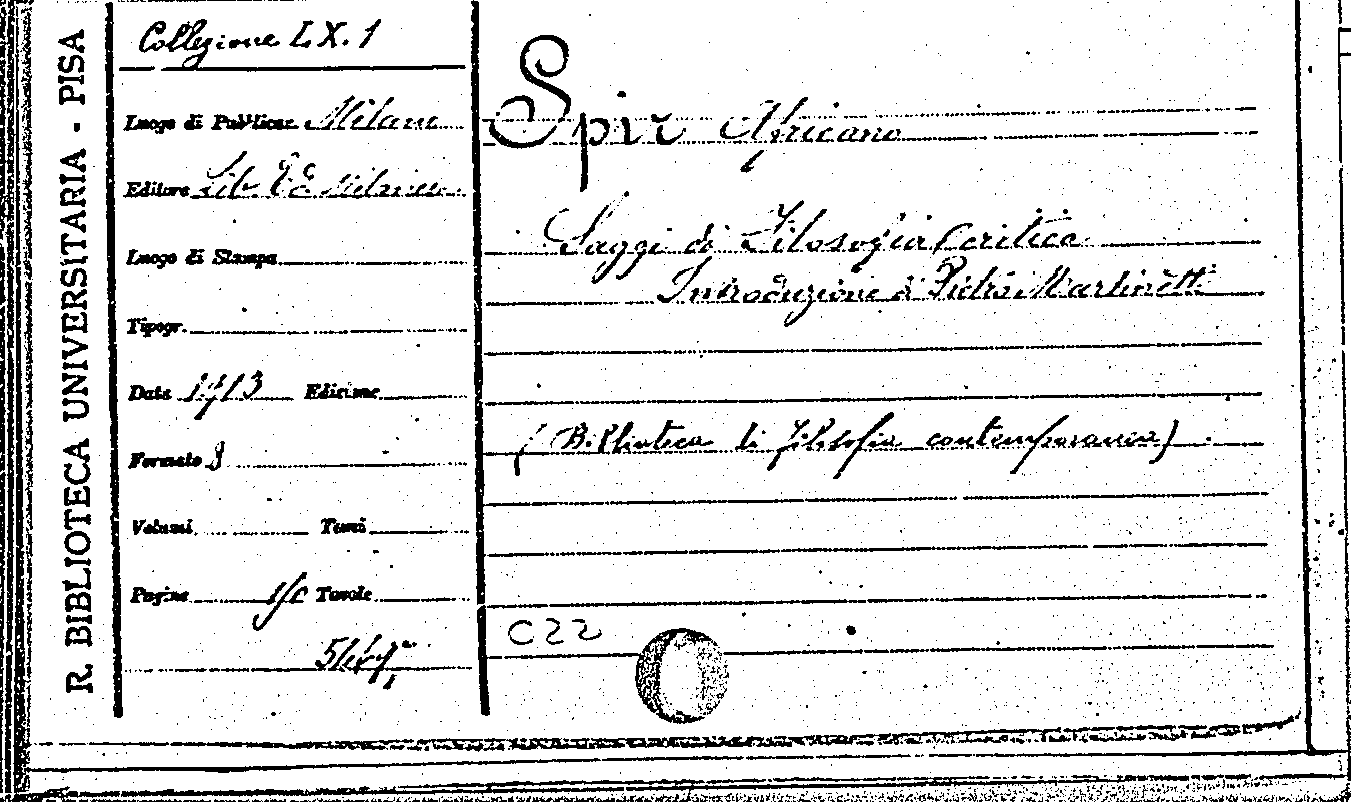 R. BIBLIOTECA UNIVERSITARIA - PISA
Collezione LX. 1
Luogo di Pubblicaz. Milano
Editore Lib. Ed. Milanese
Luogo di Stampa
Tipogr.
Data 1913 Edizione
Formato 8
Volumi Tomi
Pagine Tavole
Spir Africano
Saggi di Filosofia Critica
Introduzione di Pietro Martinetti
(Biblioteca di filosofia contemporanea)
C22